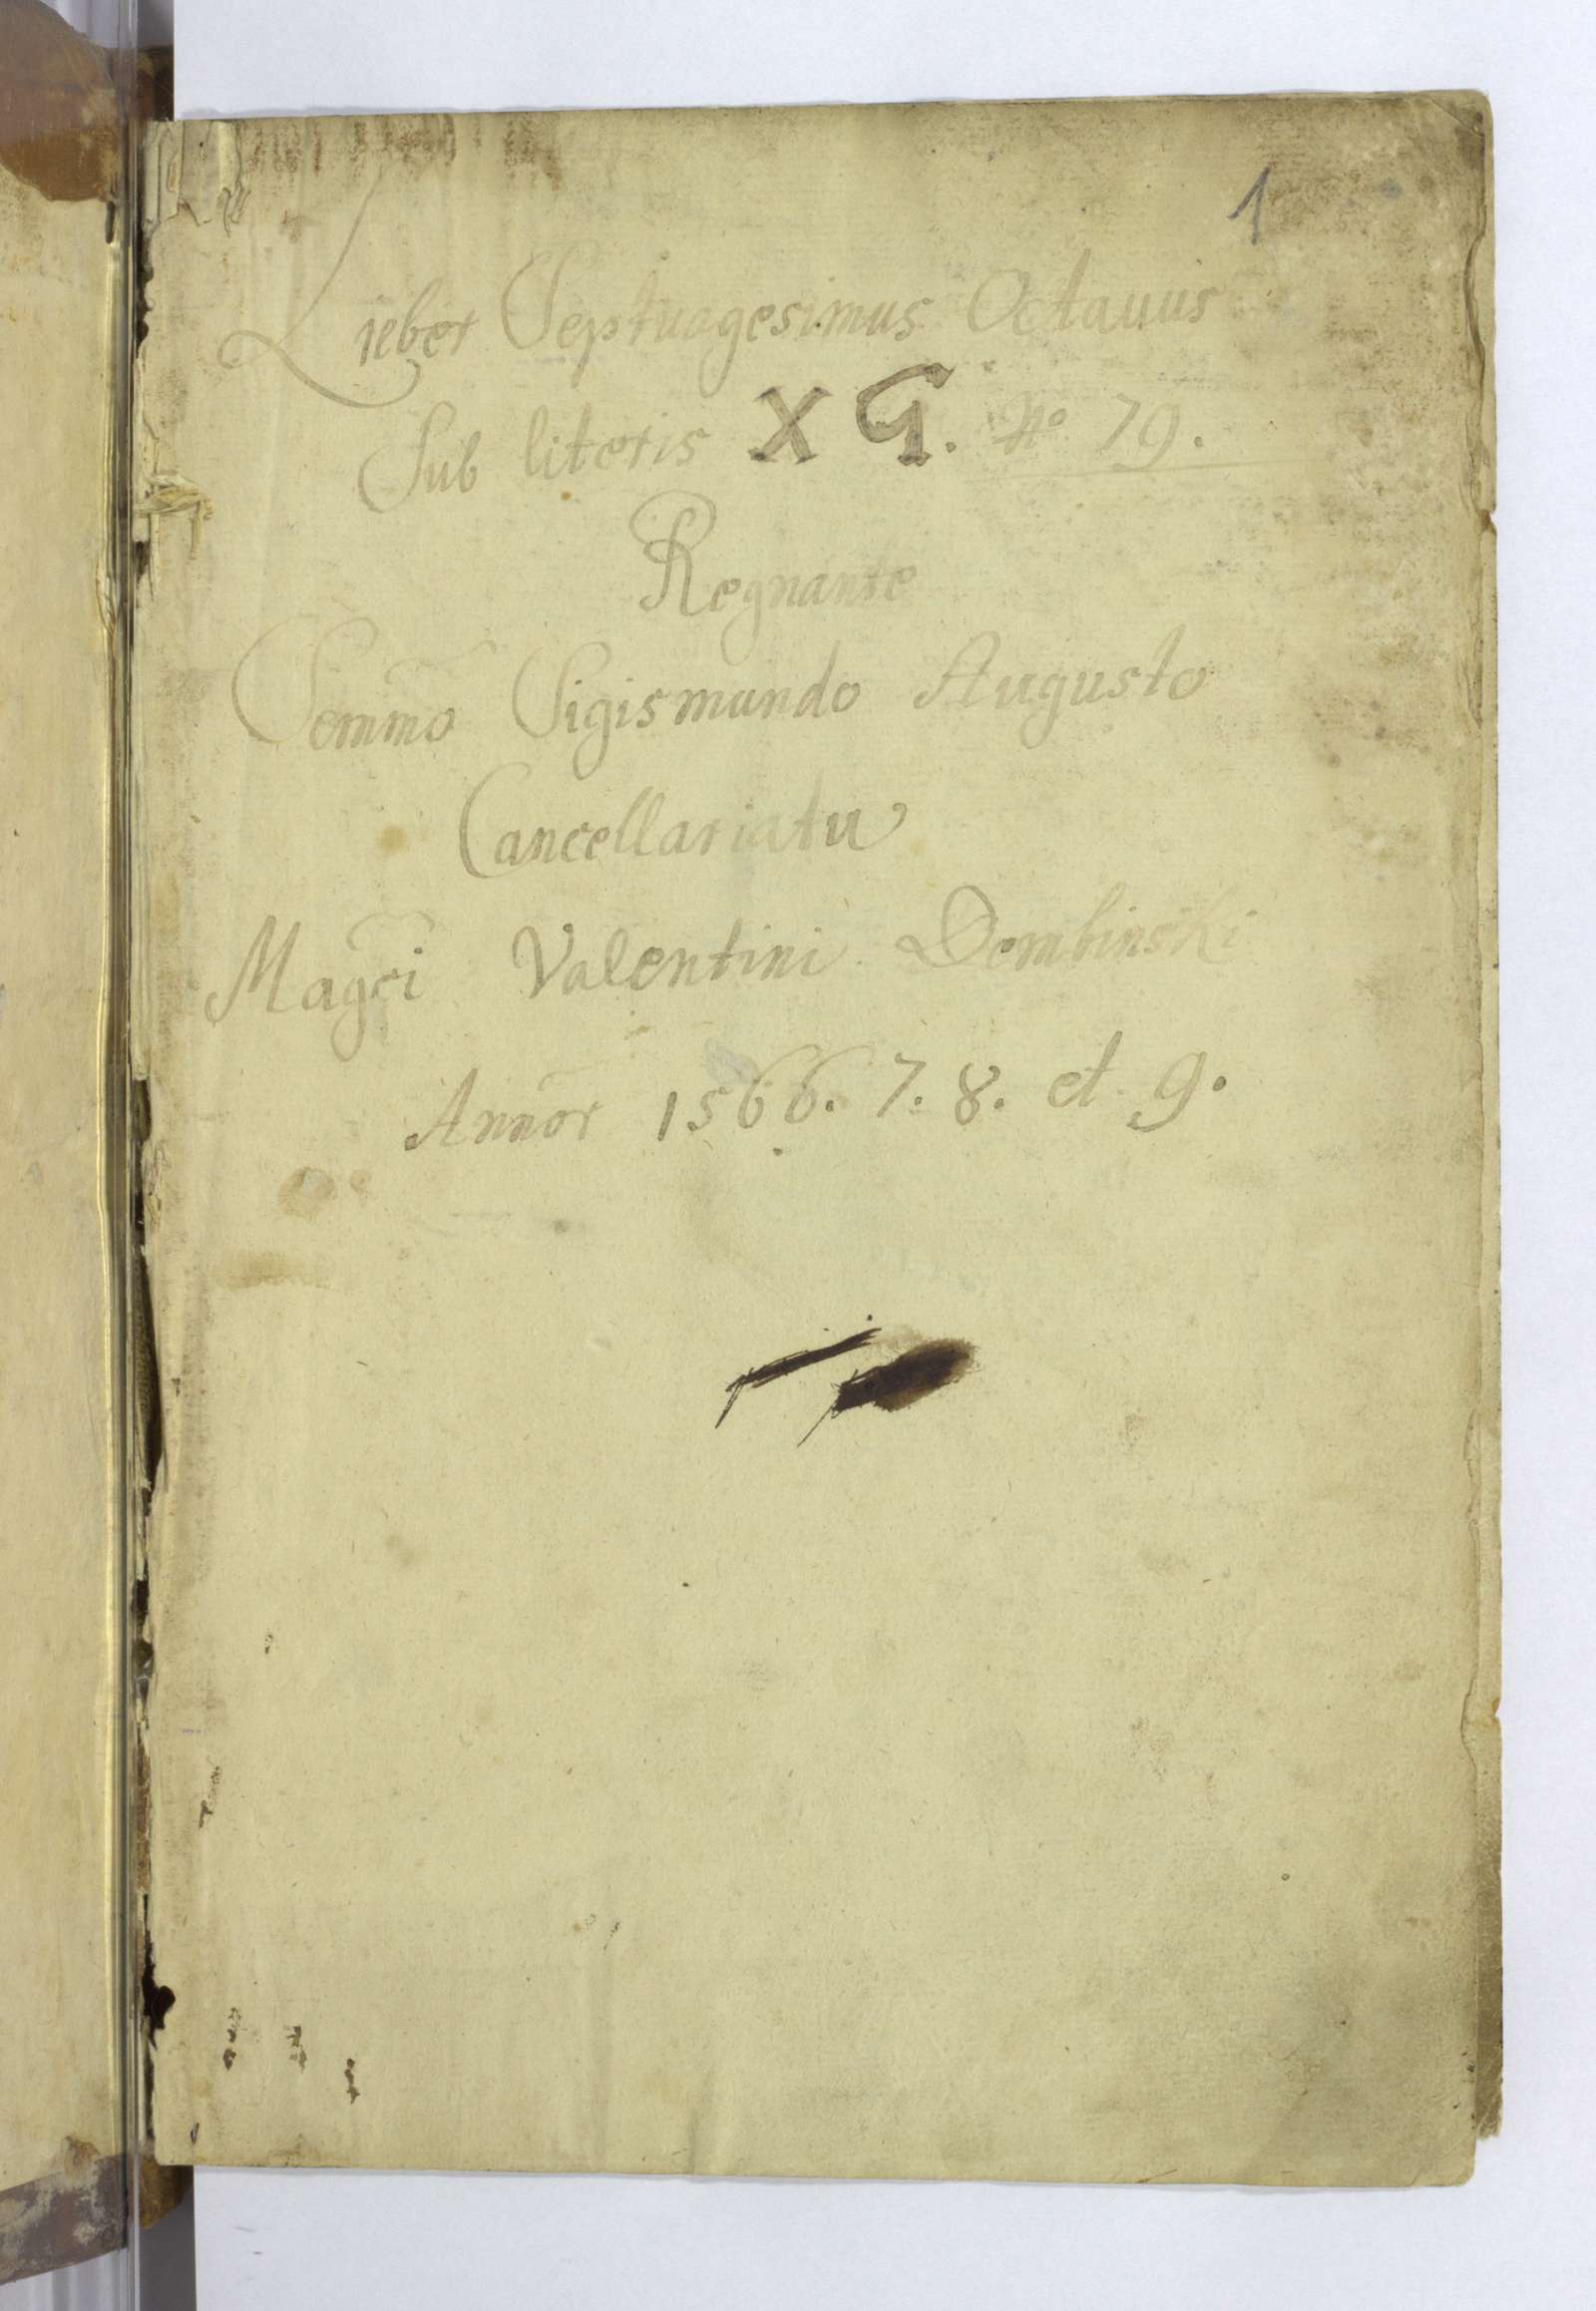 1
Lieber Septuagesimus Octauus
Sub literis XG. No 79.
Regnante
Sermo Sigismundo Augusto
Cancellariatu
Magci Valentini Dembinski
Annor 1566. 7. 8. et 9.